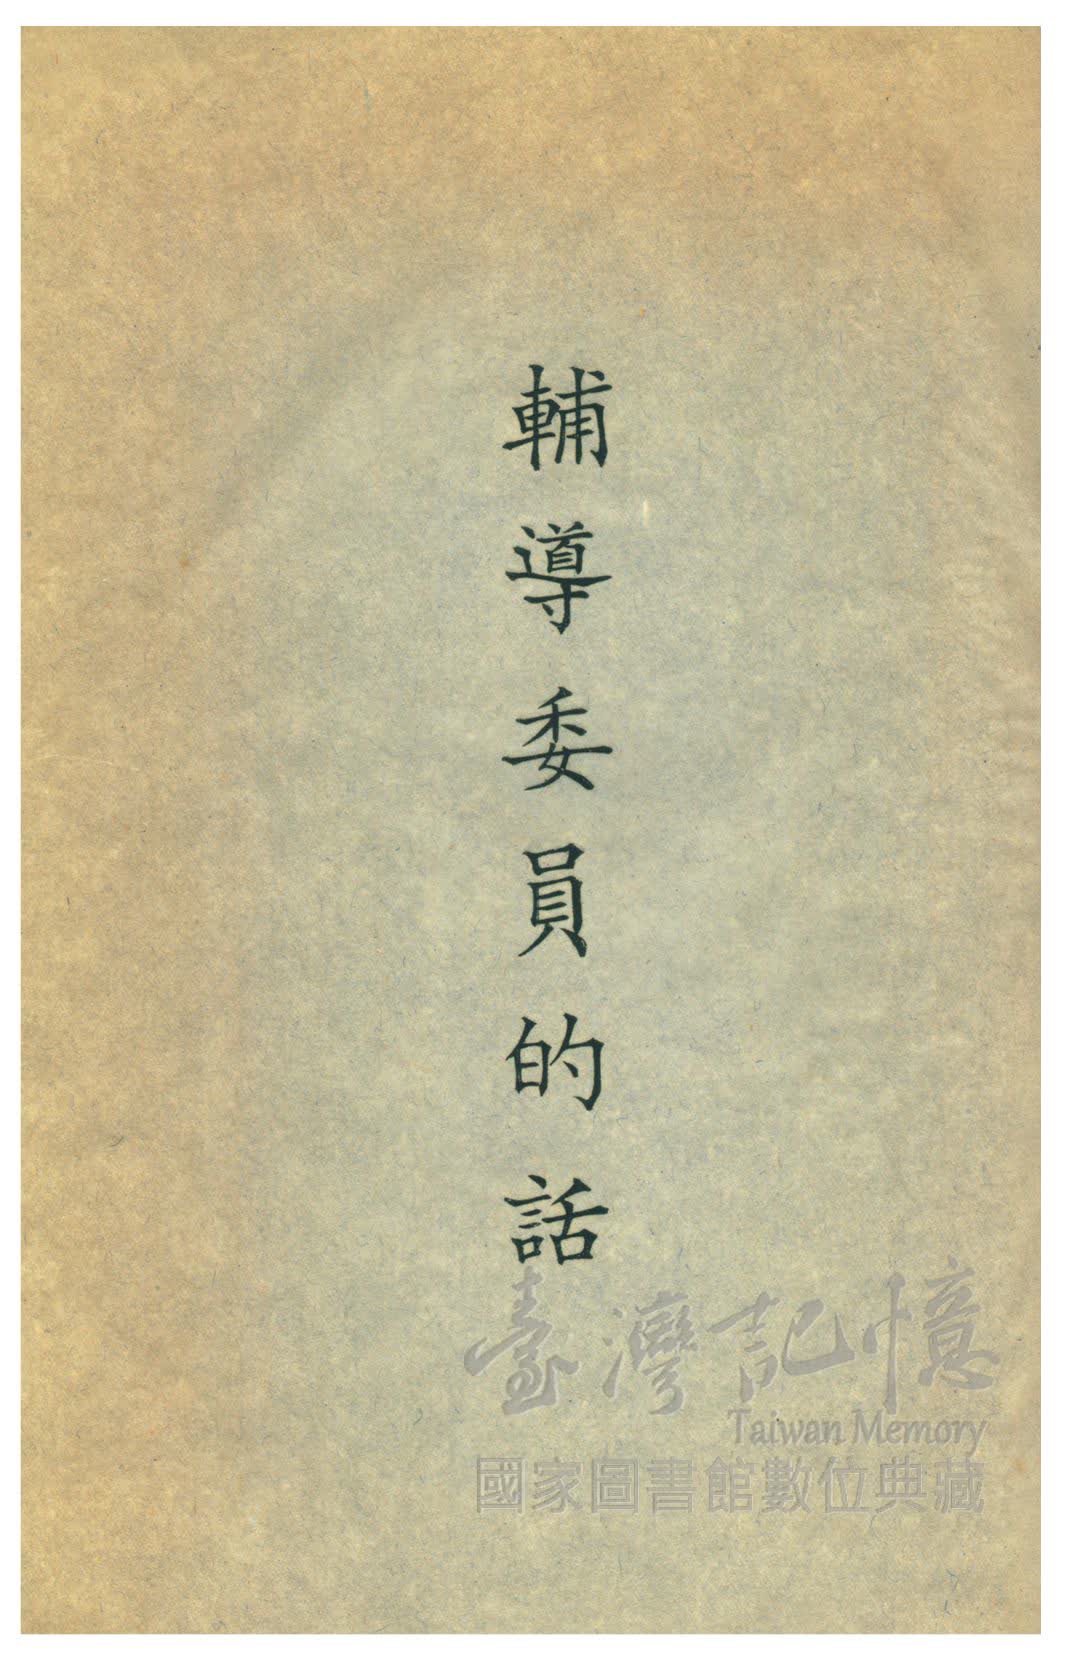 輔導委員的話
臺灣記憶
Taiwan Memory
國家圖書館數位典藏